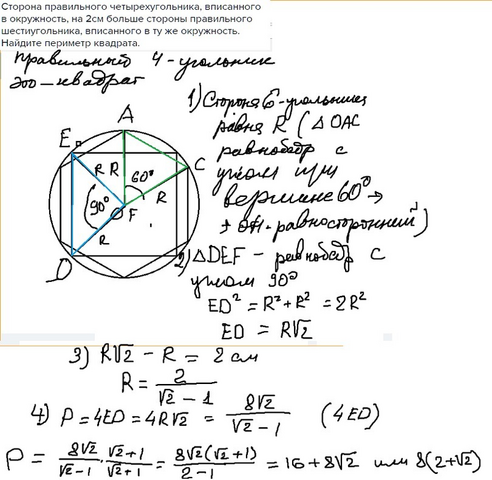 Сторона правильного четырехугольника, вписанного
в окружность, на 2см больше стороны правильного
шестиугольника, вписанного в ту же окружность.
Найдите периметр квадрата.
правильный 4-угольник
это – квадрат
1) Сторона 6-угольника
равна R (△OAC
равнобедр с
углом при
вершине 60° →
равносторонний)
A
E
C
R R 60°
R
90°
F
R
D
2) △DEF – равнобедр с
углом 90°
ED² = R² + R² = 2R²
ED = R√2
3) R√2 – R = 2 см
R = 2/(√2 – 1)
4) P = 4ED = 4R√2 = 8√2/(√2 – 1) (4ED)
P = 8√2/(√2–1) · (√2+1)/(√2+1) = 8√2(√2+1)/(2–1) = 16 + 8√2 или 8(2+√2)